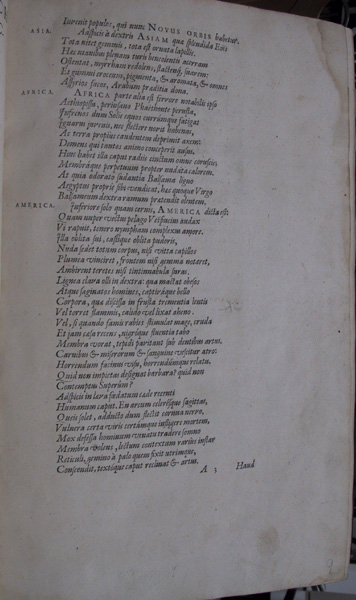 Iuvenis populos, qui nunc NOVUS ORBIS habetur.
ASIA.
Auspicii à dextris ASIAM qua splendida Eoo
Tota nitet gemmis, tota est ornata lapillo.
Hac manibus plenam turis benè olentis acerram
Ostentat, myrrham redolens, stactenq́,
Et quicquid croceum, pigmenta, & aromata, & omnes
Assyrios succos, Arabum prædivite dona.
AFRICA.
AFRICA parte alia est fervore notabilis ipso
Æthiopissa, Phaethonte perusta,
Inferiùs dum Solis equos currúmque fatigat
Ignarus juvenis, nec flectere novit habenas,
Ac terra propius candentem deprimit axem:
Demens qui tantos animo conceperit ausus.
Huic habet illa caput radiis cinctum omne coruscis,
Membráque perpetuum propter nudata calorem.
At quia odorato sudantia Balsama ligno
Ægyptus propriè sibi vendicat, hac quoque Virgo
Balsameum dextrâ ramum pratendit olentem.
AMERICA.
Inferiore solo quam cernis, AMERICA dicta est
Quam nuper vectus pelago Vespucius audax
Vi rapuit, tenero nympham complexus amore.
Illa oblita sui, castíque oblita pudoris,
Nuda sedet totum corpus, nisi vitta capillos
Plumea vinciret, frontem nisi gemma notaret,
Ambirent teretes nisi tintinnabula suras.
Lignea clava olli in dextra: qua mactat obesos
Atque saginatos homines, captívaque bello
Corpora, qua discissa in frusta trementia lentis
Vel torret flammis, calido vel lixat aheno.
Vel, si quando famis rabies stimulat mage, cruda
Et jam cæsa recens, nigróque fluentia tabo
Membra vorat, tepidi pavitant sub dentibus artus,
Carnibus & miserorum & sanguine vescitur atro:
Horrendum facinus visu, horrendúmque relatu.
Quid non impietas designat barbara? quid non
Contemptus Superûm?
Adspicis in lævâ sudatum cæde recenti
Humanum caput. En arcum celerésque sagittas,
Queis solet, adducto dum flectit cornua nervo,
Vulnera certa viris certámque infligere mortem,
Mox defessa hominum venatu tradere somno
Membra volens, lectum contextum rariùs instar
Reticuli, gemino à palo quem fixit utrimque,
Conscendit, textíque caput reclinat & artus.
A 3 Haud